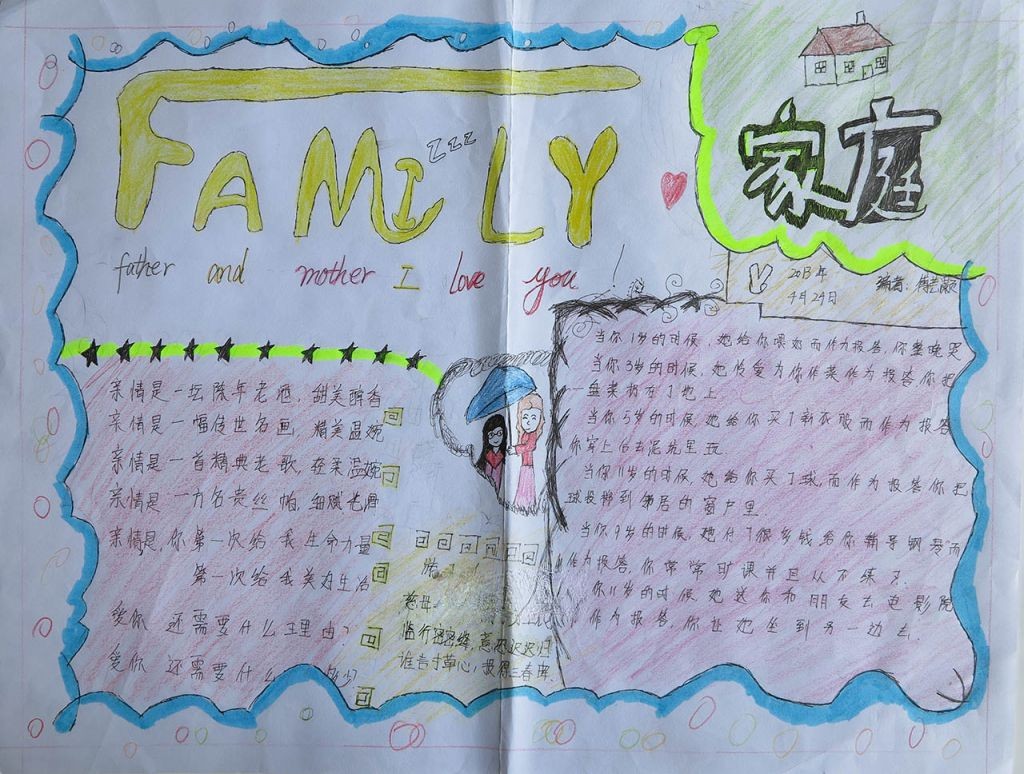 FAMILY
zzz
家庭
father and mother I love you
2013年
4月24日
编者:
亲情是一坛陈年老酒,甜美醇香
亲情是一幅传世名画,精美温婉
亲情是一首精典老歌,轻柔温婉
亲情是一方名贵丝帕,细腻光滑
亲情是,你第一次给我生命力量
第一次给我美好生活
爱你 还需要什么理由?
爱你 还需要什么
慈母
临行密密缝,意恐迟迟归
谁言寸草心,报得三春晖.
当你1岁的时候,她给你喂奶而作为报答,你整晚哭
当你3岁的时候,她怜爱为你作菜作为报答你把
一盘菜扔在了地上
当你5岁的时候她给你买了新衣服而作为报答
你穿上他去泥坑里玩.
当你11岁的时候,她给你买了球,而作为报答你把
球投掷到邻居的窗户里
当你9岁的时候,她付了很多钱给你辅导钢琴而
作为报答,你常常旷课并且从不练习.
你11岁的时候她送你和朋友去电影院
作为报答,你让她坐到另一边去